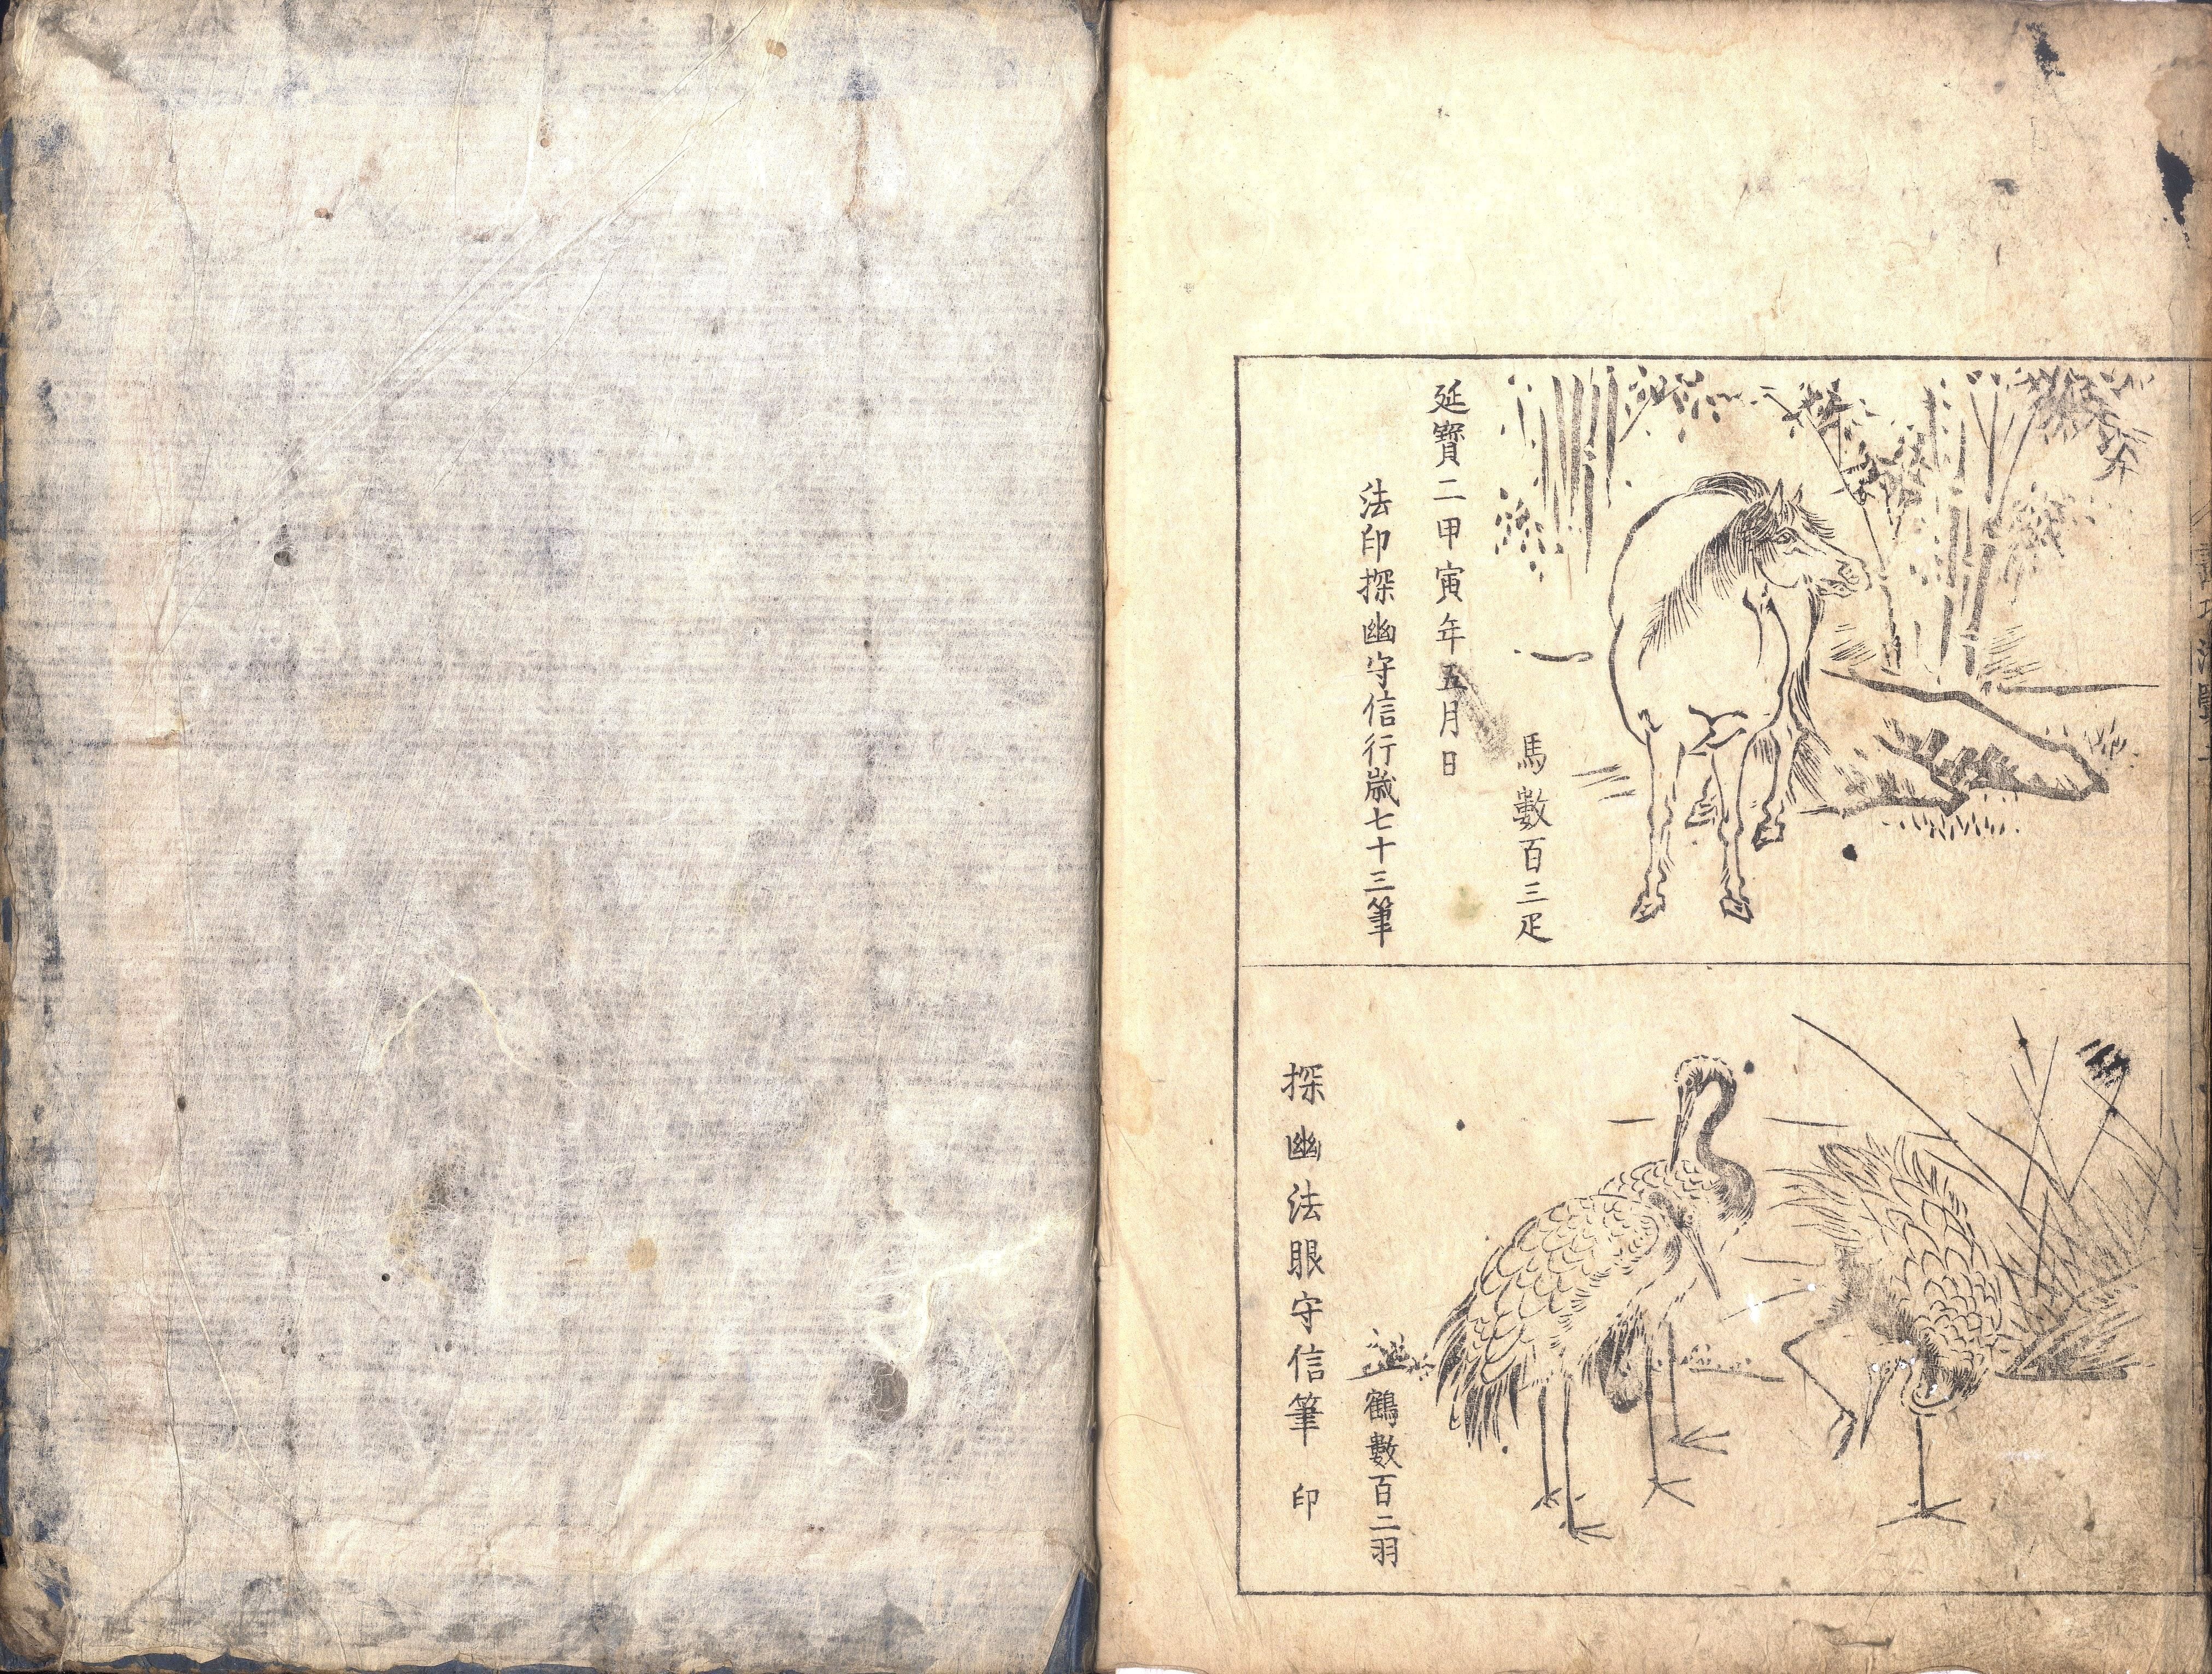 馬數百三疋
延寶二甲寅年五月日
法印探幽守信行歳七十三筆
鶴數百二羽
探幽法眼守信筆 印